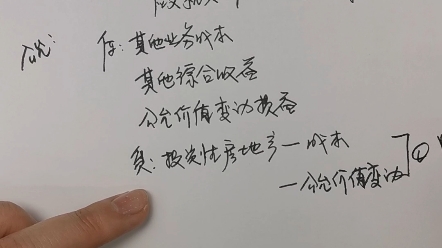 借:其他业务成本
其他综合收益
公允价值变动损益
贷:投资性房地产—成本
—公允价值变动 ①